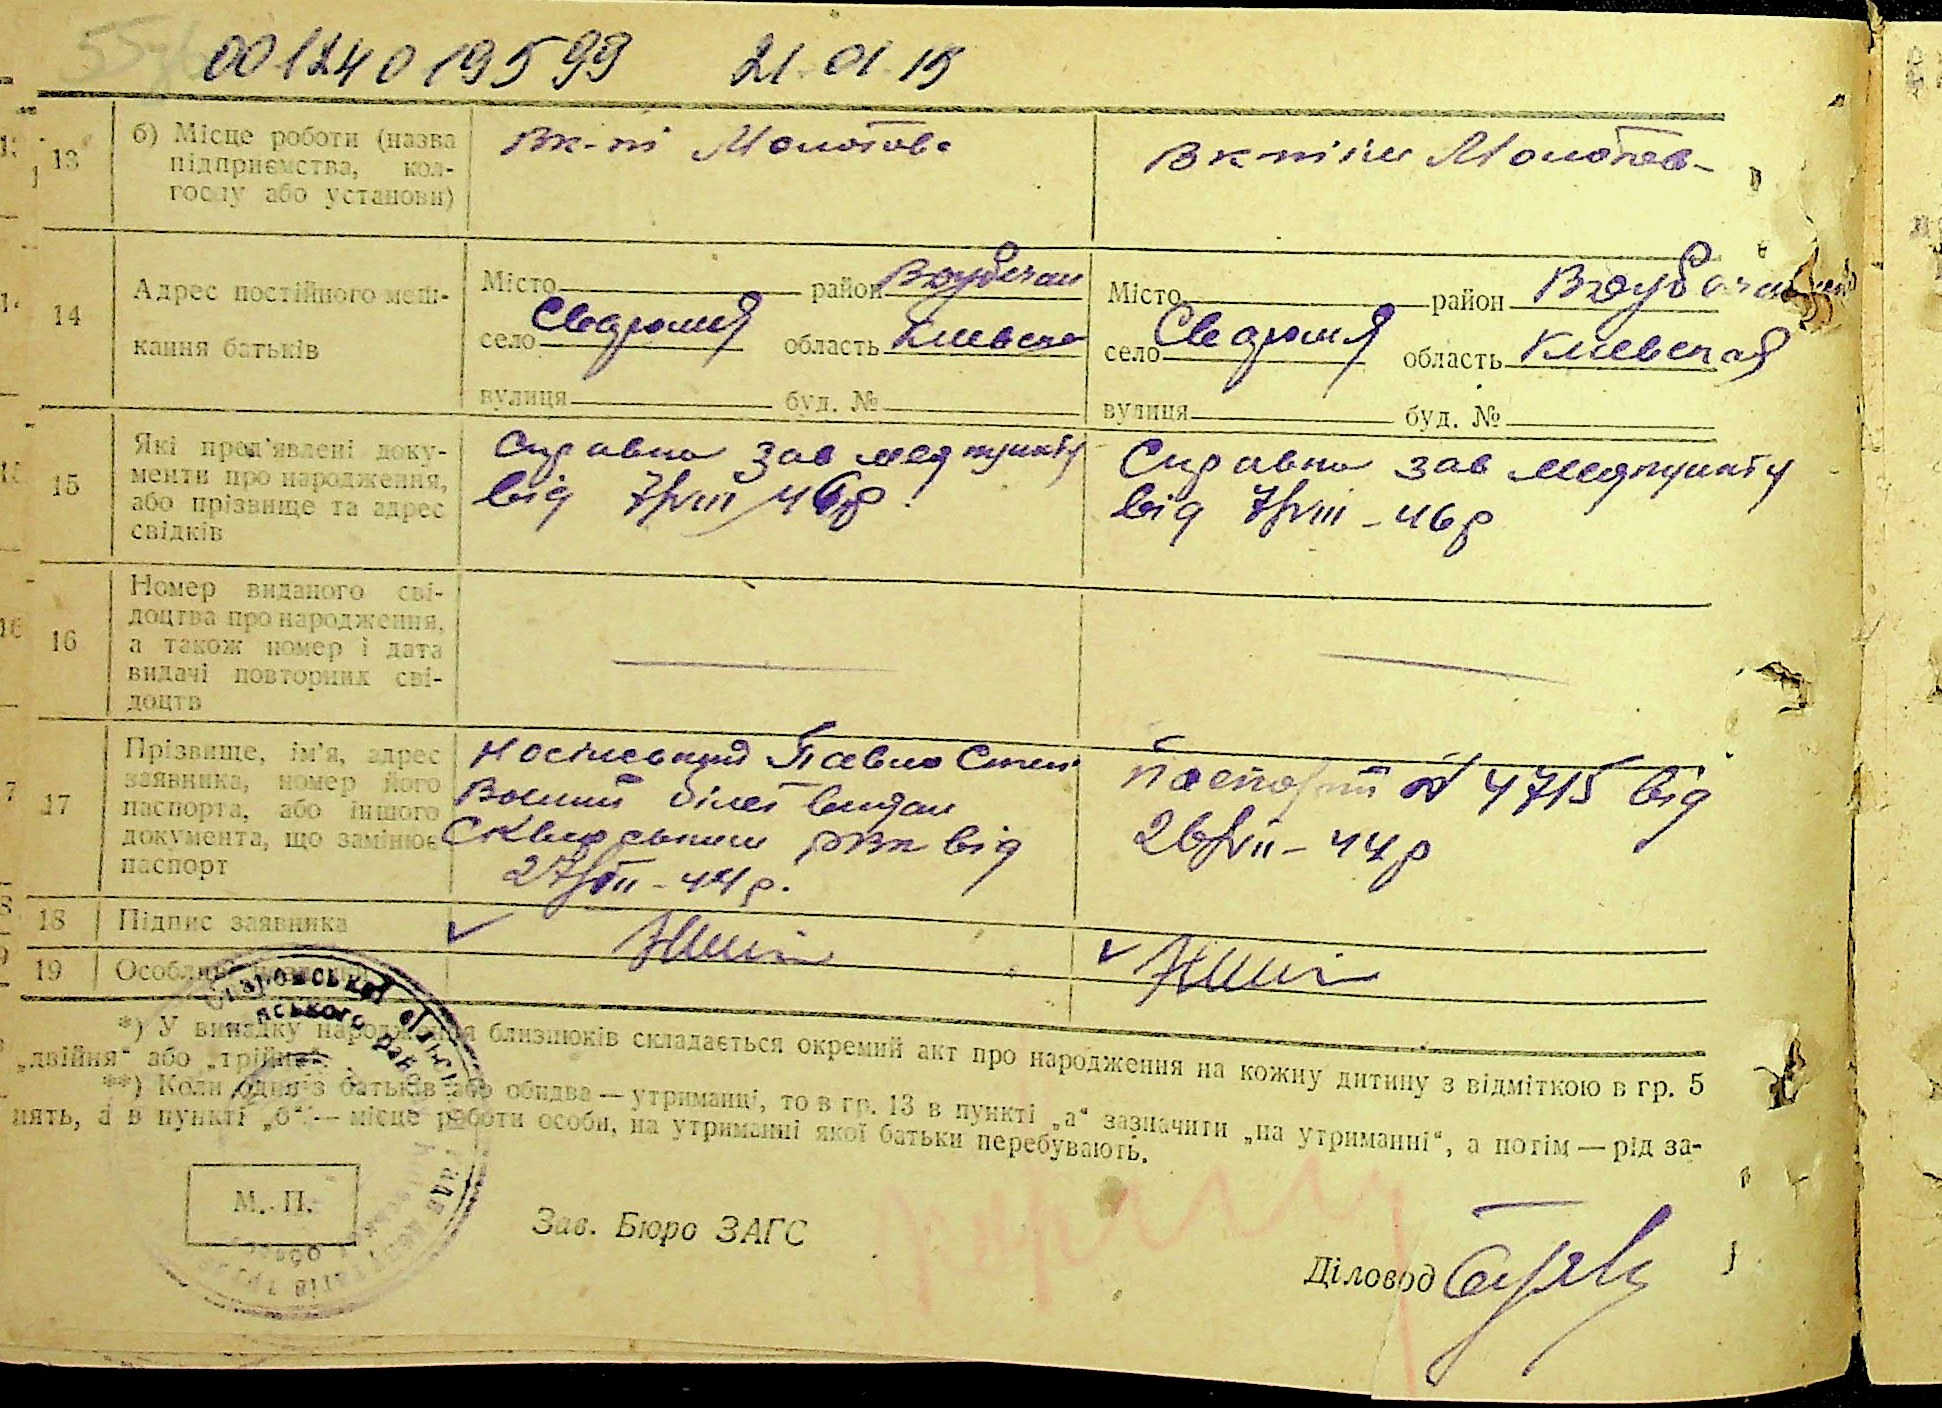 00124019599 21.01.15
13 б) Місце роботи (назва
підприємства, кол-
госпу або установи)
Вк-пі Молотова
Вк-піім Молотов-
14 Адрес постійного меш-
кання батьків
Місто район
село область Киевска
вулиця буд. №
Місто район
село область Киевская
вулиця буд. №
15 Які пред'явлені доку-
менти про народження,
або прізвище та адрес
свідків
Справка зав медпункту
від 7/VIII 46р.
Справка зав медпункту
від 7/VIII - 46р
16 Номер виданого сві-
доцтва про народження,
а також номер і дата
видачі повторних сві-
доцтв
17 Прізвище, ім'я, адрес
заявника, номер його
паспорта, або іншого
документа, що замінює
паспорт
Павло
білет видан
РВК від
27/VII - 44р.
Паспорт № 4715 від
26/VII - 44р
18 Підпис заявника
19 Особливі
*) У випадку народження близнюків складається окремий акт про народження на кожну дитину з відміткою в гр. 5
„двійня“ або „трійня“.
**) Коли один з батьків або обидва — утриманці, то в гр. 13 в пункті „а“ зазначити „на утриманні“, а потім — рід за-
нять, а в пункті „б“ — місце роботи особи, на утриманні якої батьки перебувають.
М. П.
Зав. Бюро ЗАГС
Діловод